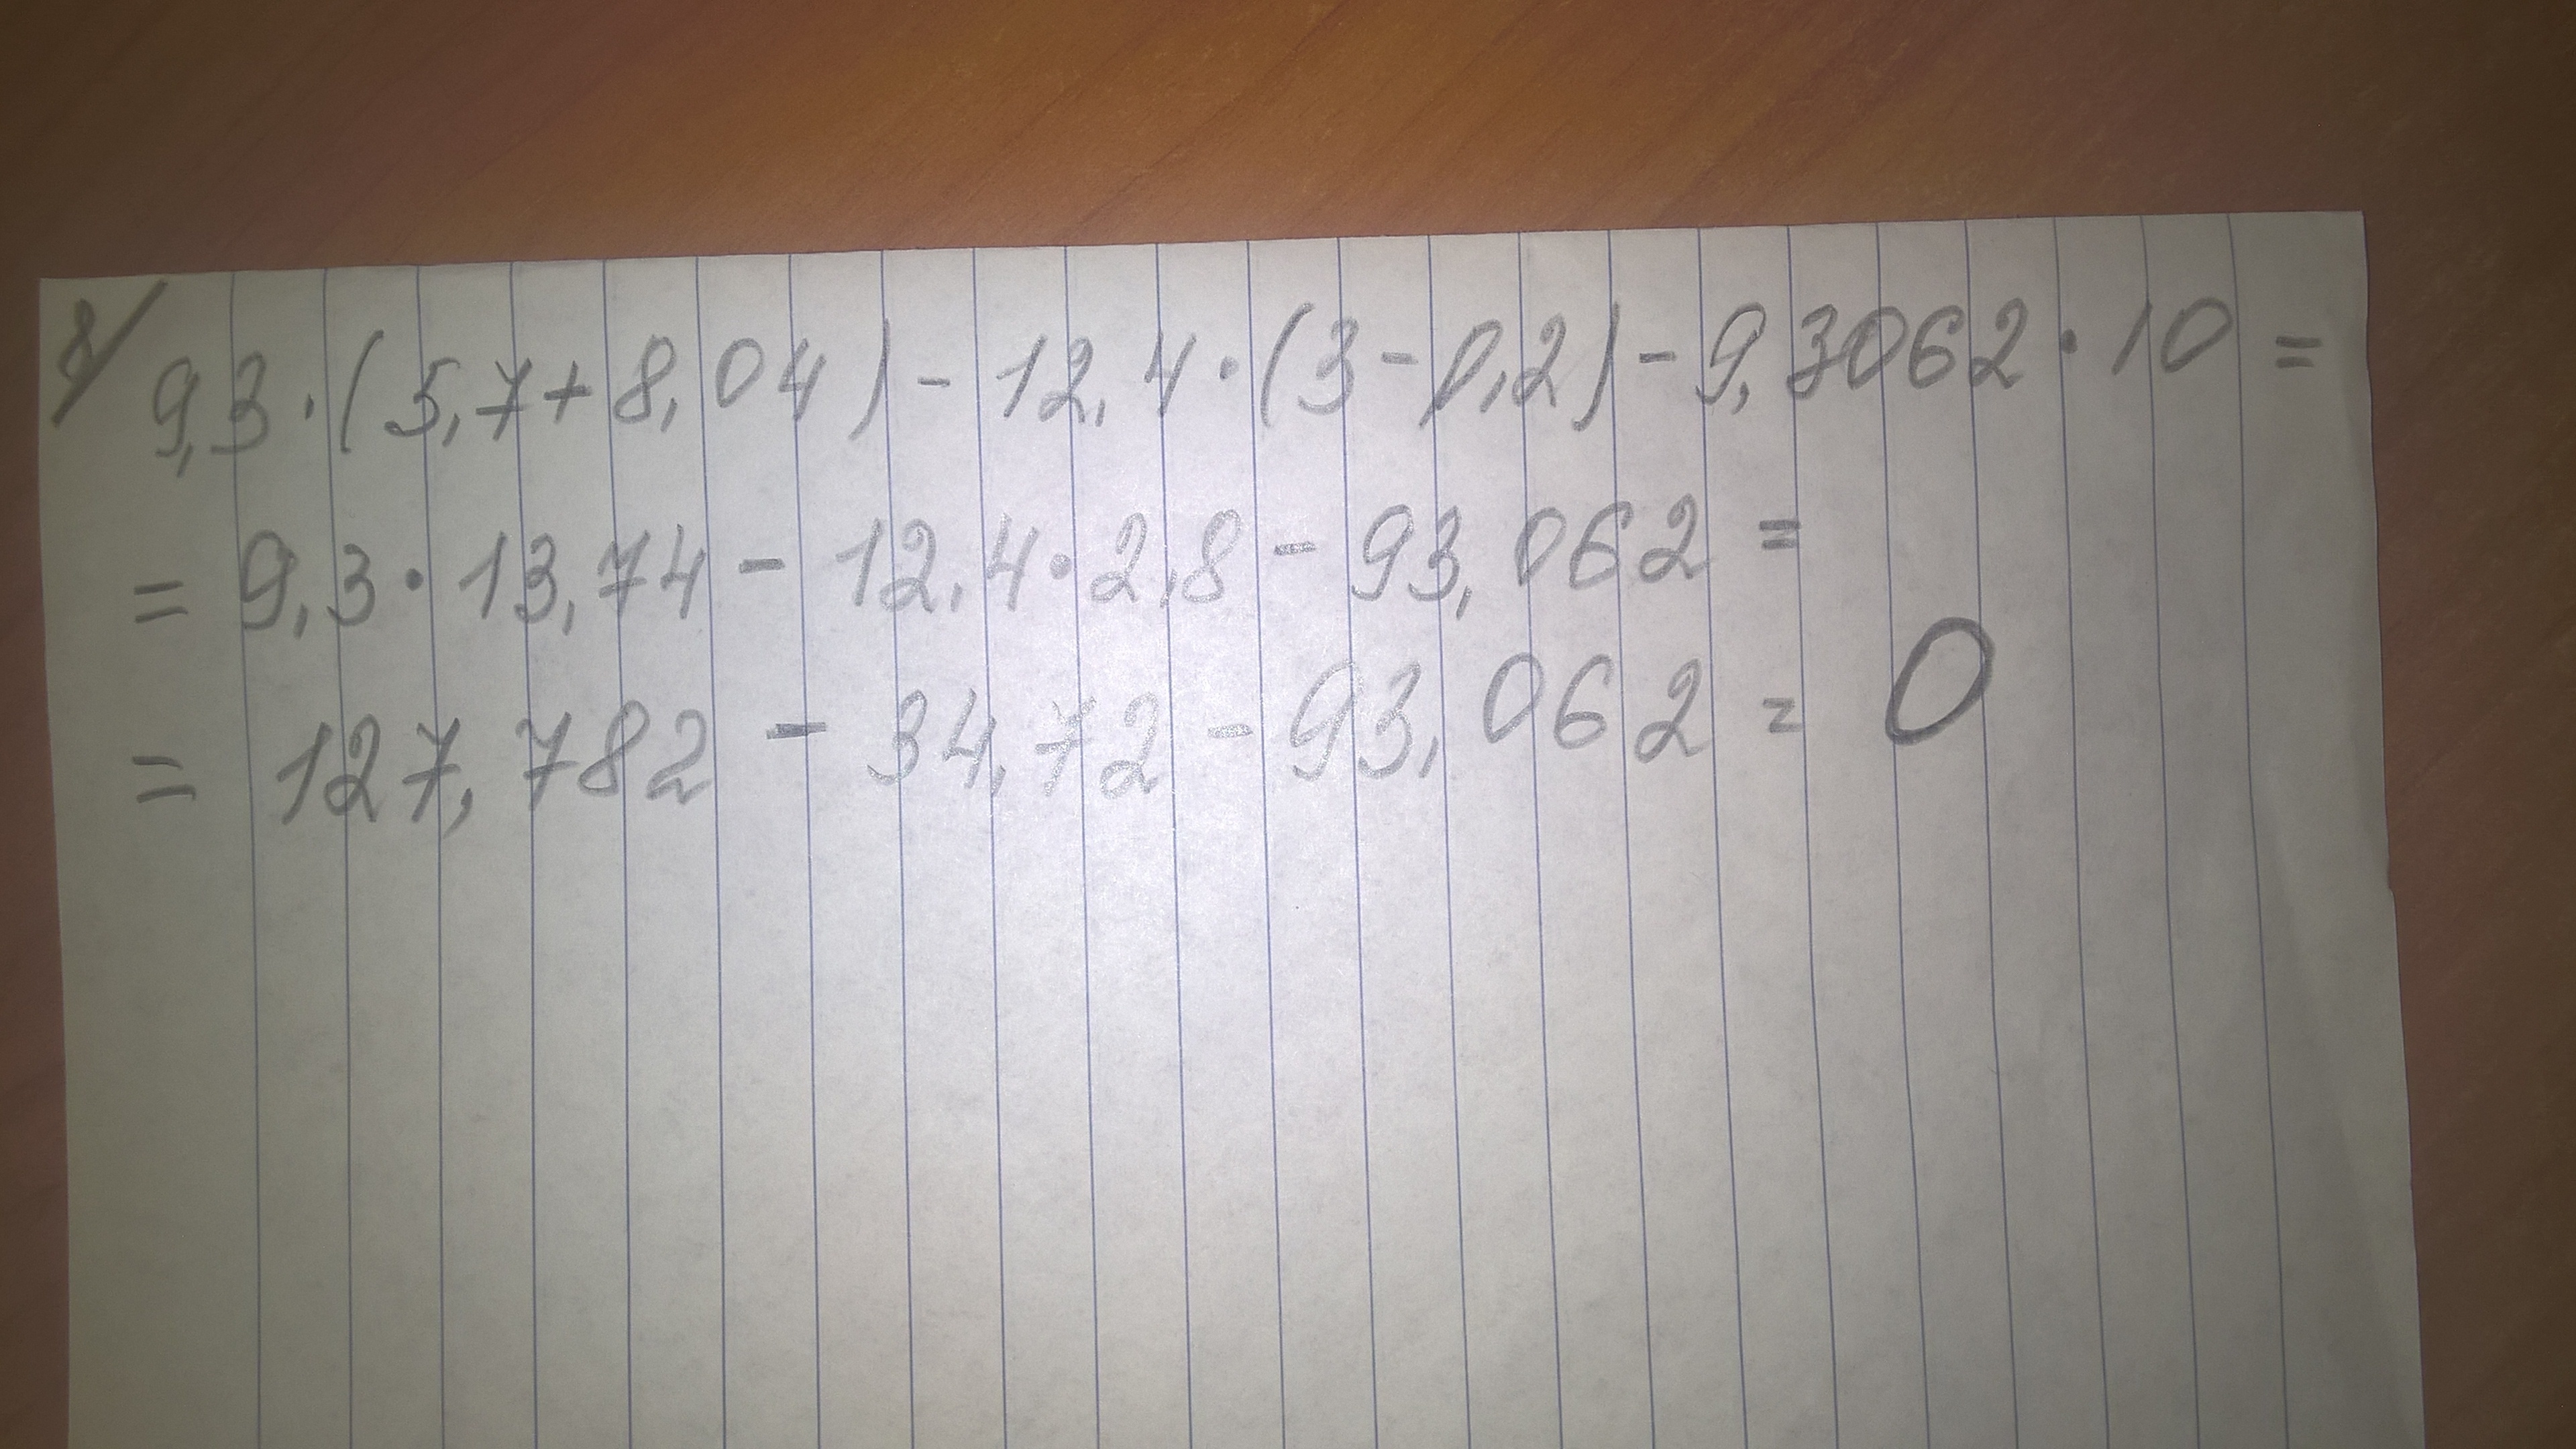 9,3·(5,7+8,04)-12,4·(3-0,2)-9,3062·10=
=9,3·13,74-12,4·2,8-93,062=
=127,782-34,72-93,062=0